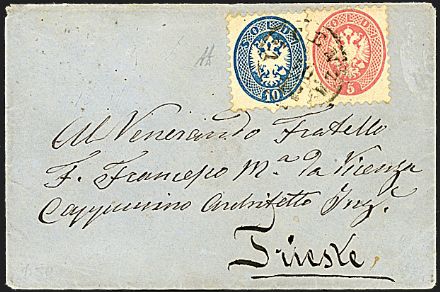 SOLDI SOLDI
10 5
Al Venerando Fratello
F. Francesco M.ª da Vicenza
Cappuccino Architetto Ing.ᵉ
Trieste